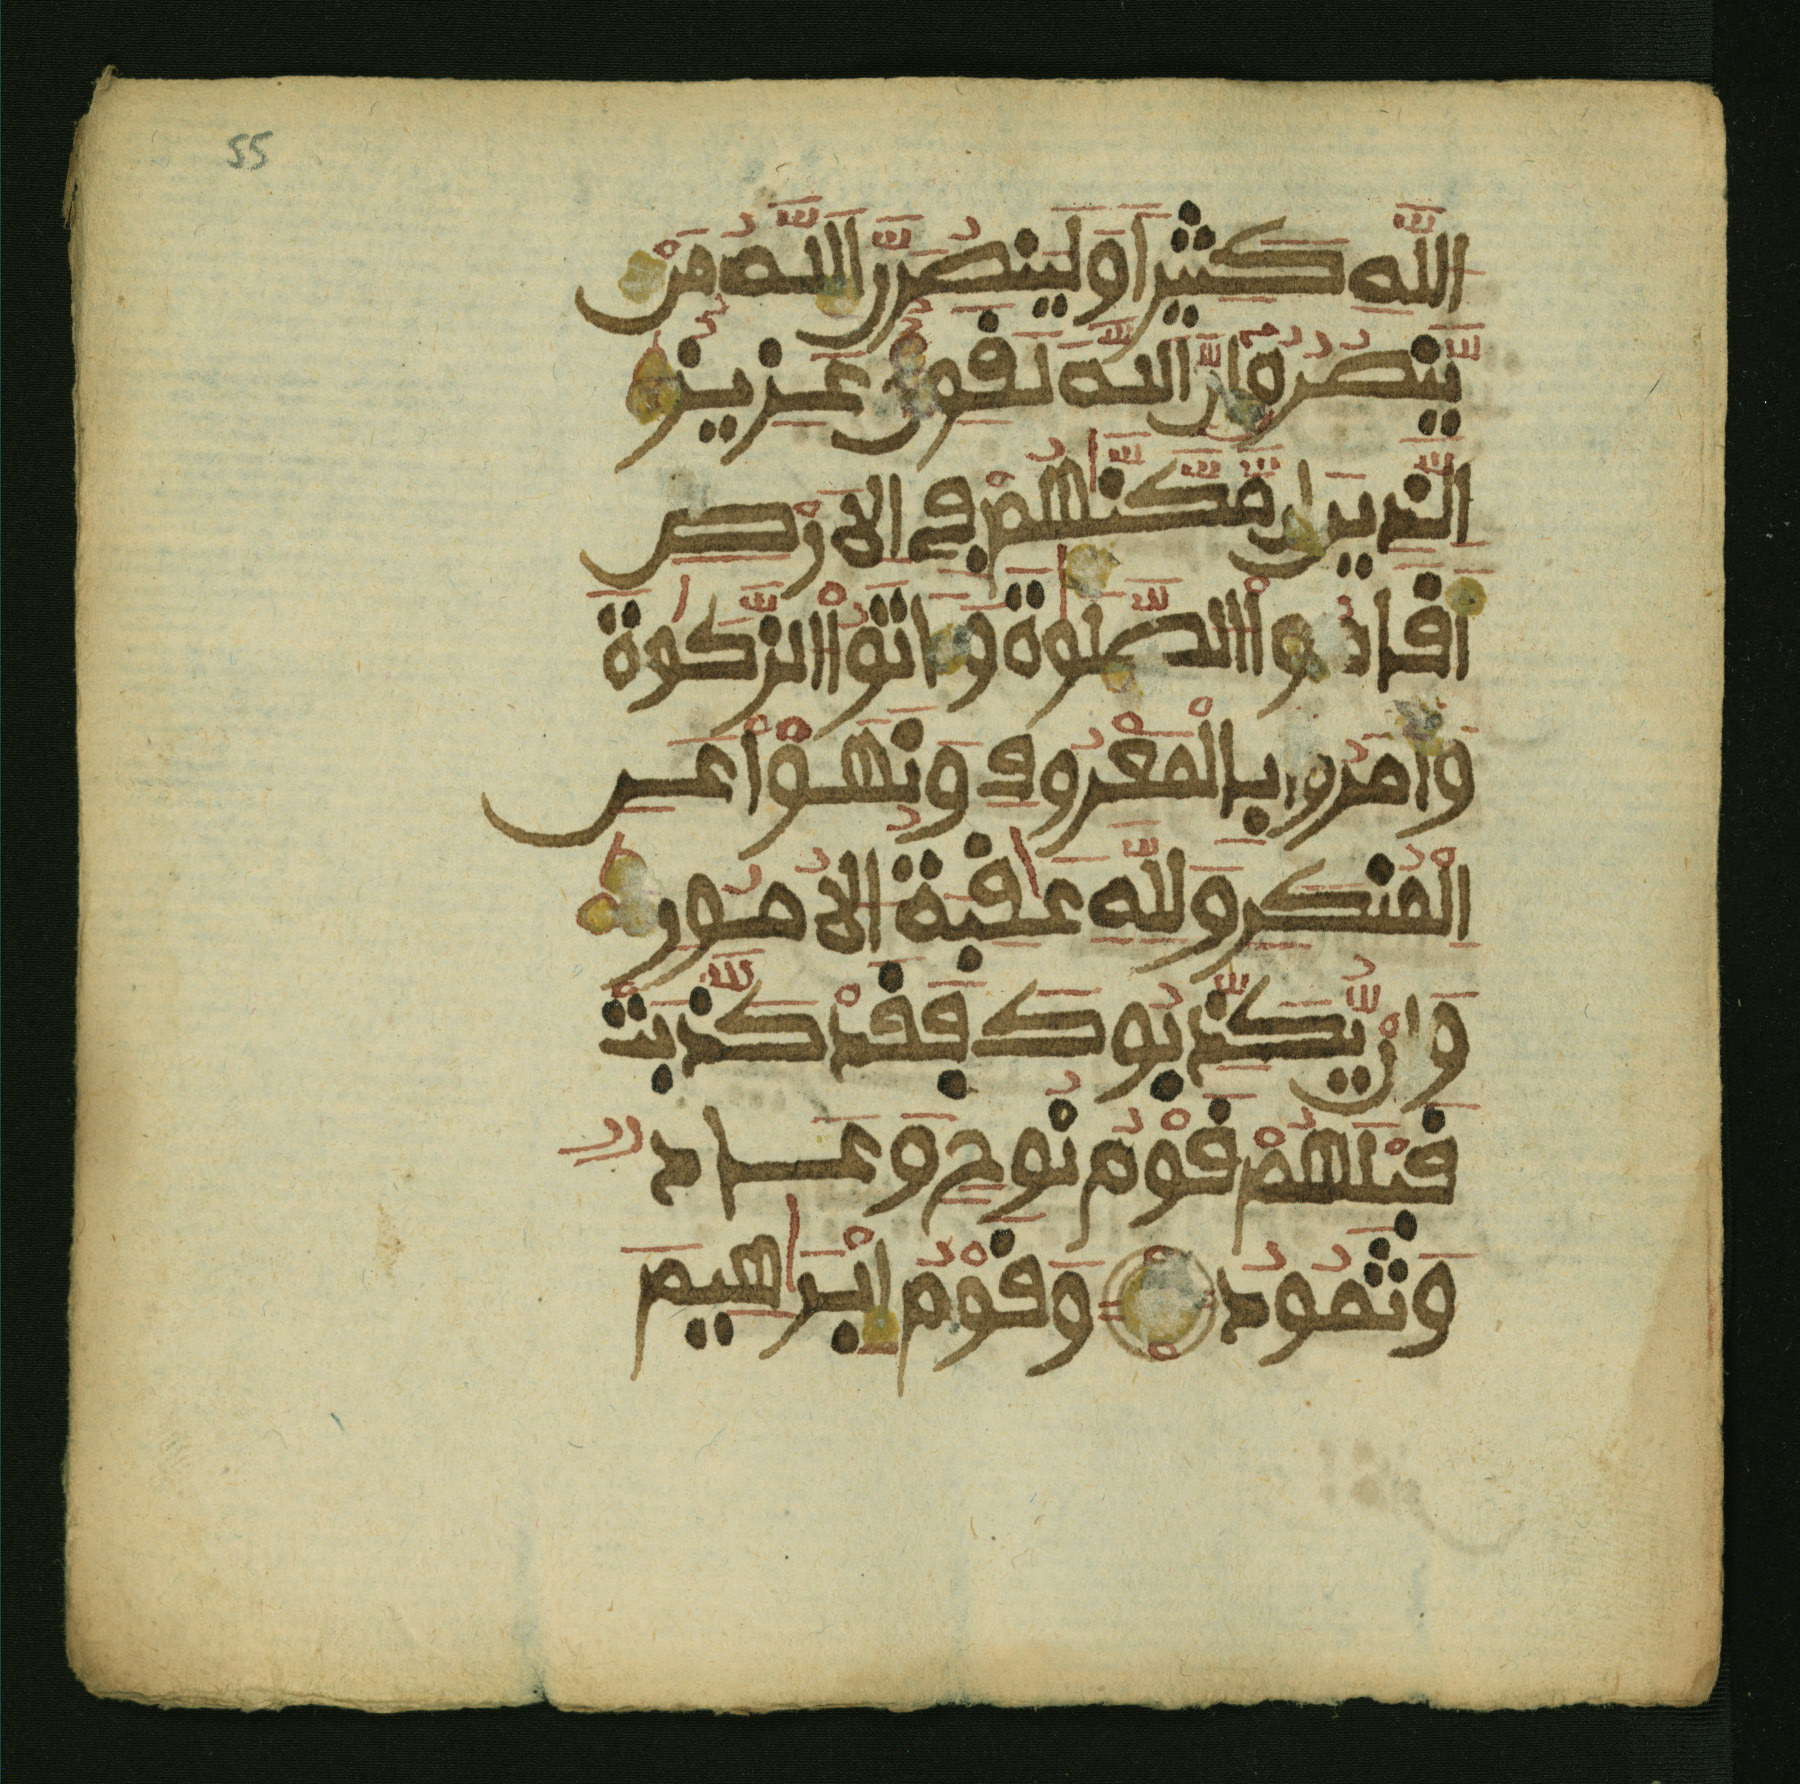 55
اللَّهِ كَثِيرًا وَلَيَنصُرَنَّ اللَّهُ مَنْ
يَّنصُرُهُ إِنَّ اللَّهَ لَقَوِيٌّ عَزِيزٌ
الَّذِينَ إِن مَّكَّنَّٰهُمْ فِي الَارْضِ
أَقَامُوا الصَّلَوٰةَ وَءَاتَوُا الزَّكَوٰةَ
وَأَمَرُوا بِالْمَعْرُوفِ وَنَهَوْا عَنِ
الْمُنكَرِ وَلِلَّهِ عَٰقِبَةُ الُامُورِ
وَإِنْ يُّكَذِّبُوكَ فَقَدْ كَذَّبَتْ
قَبْلَهُمْ قَوْمُ نُوحٍ وَعَادٌ
وَثَمُودُ وَقَوْمُ إِبْرَٰهِيمَ